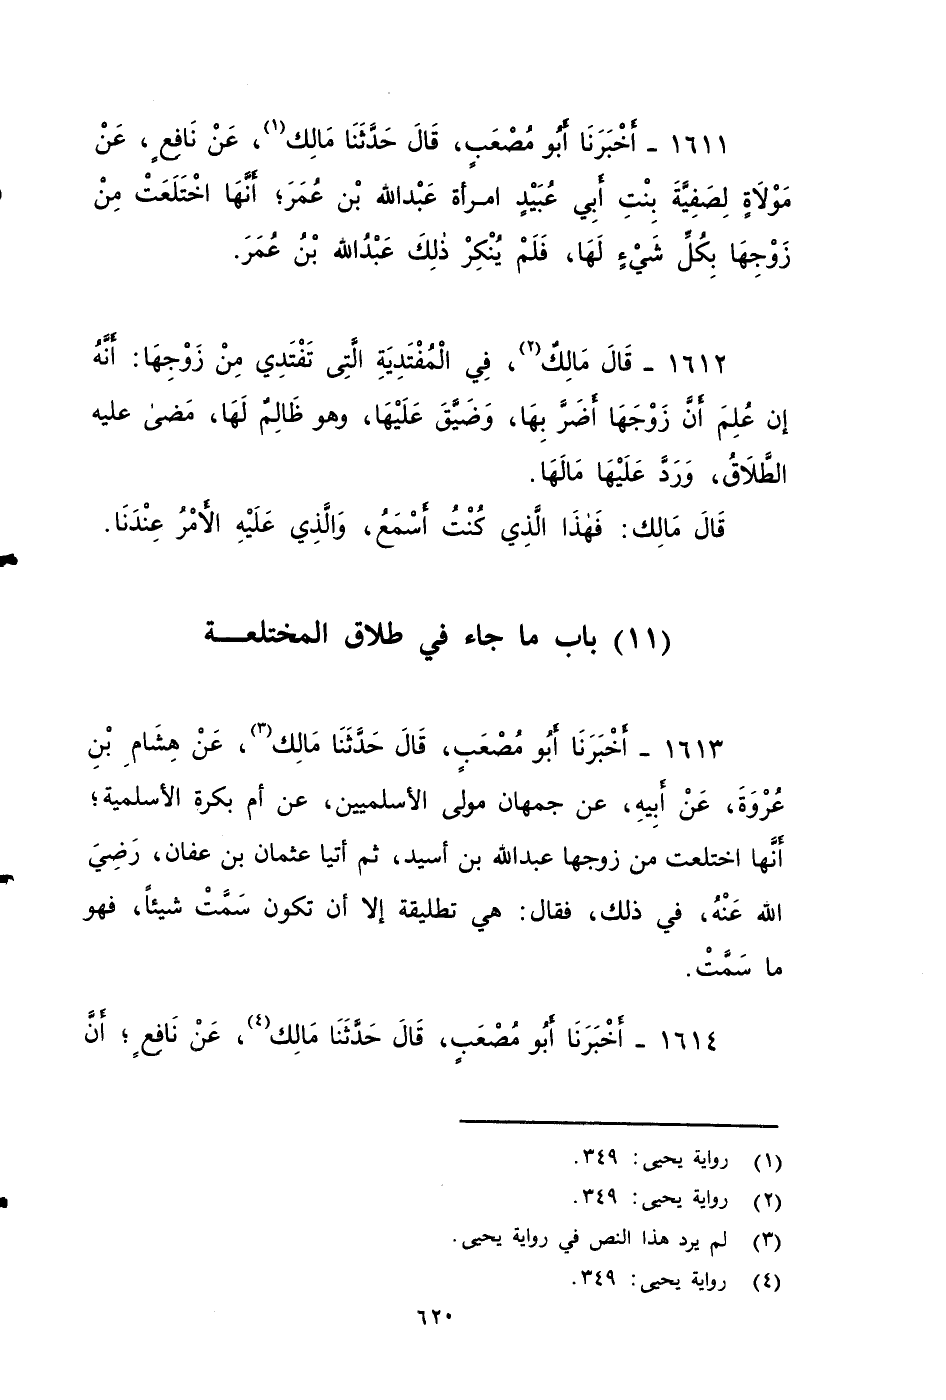 ١٦١١ ـ أَخْبَرَنَا أَبُو مُصْعَبٍ، قَالَ حَدَّثَنَا مَالِك(١)، عَنْ نَافِعٍ، عَنْ
مَوْلَاةٍ لِصَفِيَّةَ بِنْتِ أَبِي عُبَيْدٍ امرأة عَبْدالله بْن عُمَرَ؛ أَنَّهَا اخْتَلَعَتْ مِنْ
زَوْجِهَا بِكُلِّ شَيْءٍ لَهَا، فَلَمْ يُنْكِرْ ذٰلِكَ عَبْدُالله بْنُ عُمَرَ.
١٦١٢ ـ قَالَ مَالِكٌ(٢)، فِي الْمُفْتَدِيَةِ الَّتِى تَفْتَدِي مِنْ زَوْجِهَا: أَنَّهُ
إن عُلِمَ أَنَّ زَوْجَهَا أَضَرَّ بِهَا، وَضَيَّقَ عَلَيْهَا، وهو ظَالِمٌ لَهَا، مَضىٰ عليه
الطَّلَاقُ، وَرَدَّ عَلَيْهَا مَالَهَا.
قَالَ مَالِك: فَهٰذَا الَّذِي كُنْتُ أَسْمَعُ، وَالَّذِي عَلَيْهِ الأَمْرُ عِنْدَنَا.
(١١) باب ما جاء في طلاق المختلعة
١٦١٣ ـ أَخْبَرَنَا أَبُو مُصْعَبٍ، قَالَ حَدَّثَنَا مَالِك(٣)، عَنْ هِشَامِ بْنِ
عُرْوَةَ، عَنْ أَبِيهِ، عن جمهان مولى الأسلميين، عن أم بكرة الأسلمية؛
أَنَّها اختلعت من زوجها عبدالله بن أسيد، ثم أتيا عثمان بن عفان، رَضِيَ
الله عَنْهُ، في ذلك، فقال: هي تطليقة إلا أن تكون سَمَّتْ شيئاً، فهو
ما سَمَّتْ.
١٦١٤ ـ أَخْبَرَنَا أَبُو مُصْعَبٍ، قَالَ حَدَّثَنَا مَالِك(٤)، عَنْ نَافِعٍ؛ أَنَّ
(١) رواية يحيى: ٣٤٩.
(٢) رواية يحيى: ٣٤٩.
(٣) لم يرد هذا النص في رواية يحيى.
(٤) رواية يحيى: ٣٤٩.
٦٢٠